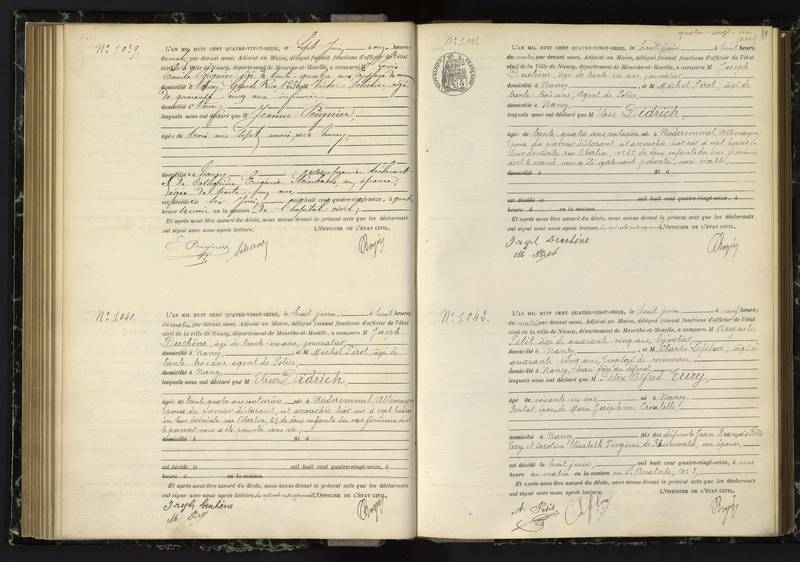 N° 1.039.
L'AN MIL HUIT CENT QUATRE-VINGT-SEIZE, le Sept juin, à onze heures
du matin par devant nous, Adjoint au Maire, délégué faisant fonctions d'officier de l'état
civil de la ville de Nancy, département de Meurthe-et-Moselle, a comparu M. Louis
Emile âgé de trente quatre ans
domicilié à Nancy, Grande Rue et Victor âgé
de quarante cinq ans, infirmier
domicilié à Nancy
lesquels nous ont déclaré que Jeanne
âgée de trois ans Sept mois, née à Nancy
domicilié à Nancy
et de Catherine Eugénie son épouse,
âgée de trente cinq ans
est décédée le six juin, mil huit cent quatre-vingt-seize, à quatre
heures du soir en la maison de l'hôpital civil;
Et après nous être assuré du décès, nous avons dressé le présent acte que les déclarants
ont signé avec nous après lecture. L'OFFICIER DE L'ÉTAT CIVIL,
N° 1.040.
L'AN MIL HUIT CENT QUATRE-VINGT-SEIZE, le huit juin, à huit heures
du matin par devant nous, Adjoint au Maire, délégué faisant fonctions d'officier de l'état
civil de la ville de Nancy, département de Meurthe-et-Moselle, a comparu M Joseph
Duchène, âgé de trente six ans, journalier
domicilié à Nancy, et M Michel Pirot, âgé de
trente trois ans agent de Police
domicilié à Nancy
lesquels nous ont déclaré que M Elise Didrich,
âgée de trente quatre ans couturière née à Niederemmel Allemagne
Epouse du premier déclarant, est accouchée hier soir à sept heures
en leur domicile rue Oberlin, 67 de deux enfants du sexe féminin dont
le premier nous a été présenté sans vie,
domicilié à fil à
est décédé le mil huit cent quatre-vingt-seize, à
heure à en la maison
Et après nous être assuré du décès, nous avons dressé le présent acte que les déclarants
ont signé avec nous après lecture, L'OFFICIER DE L'ÉTAT CIVIL,
Joseph Duchène
quatre-vingt-un
81
N° 1.041.
RÉPUBLIQUE FRANÇAISE
L'AN MIL HUIT CENT QUATRE-VINGT-SEIZE, le huit juin à huit heures
du matin par devant nous, Adjoint au Maire, délégué faisant fonctions d'officier de l'état
civil de la Ville de Nancy, département de Meurthe-et-Moselle, a comparu M Joseph
Duchène, âgé de trente six ans, journalier
domicilié à Nancy, et M Michel Pirot, âgé de
trente trois ans, Agent de Police,
domicilié à Nancy
lesquels nous ont déclaré que M Elise Didrich,
âgée de trente quatre ans couturière née à Niederemmel Allemagne
Epouse du premier déclarant, est accouchée hier soir à sept heures en
leur domicile rue Oberlin, n° 67 de deux enfants du sexe féminin
dont le second nous a été également présenté, non viable,
domicilié à fil à
est décédé le mil huit cent quatre-vingt-seize, à
heure à en la maison
Et après nous être assuré du décès, nous avons dressé le présent acte que les déclarants
ont signé avec nous après lecture, L'OFFICIER DE L'ÉTAT CIVIL,
Joseph Duchène
M. Pirot
N° 1.042.
L'AN MIL HUIT CENT QUATRE-VINGT-SEIZE, le huit juin, à neuf heures
du matin par devant nous, Adjoint au Maire, délégué faisant fonctions d'officier de l'état
civil de la ville de Nancy, département de Meurthe-et-Moselle, a comparu M Auguste
Petit âgé de quarante cinq ans bijoutier
domicilié à Nancy, et M Charles Lefebvre, âgé de
quarante ans, Employé de commerce,
domicilié à Nancy du défunt,
lesquels nous ont déclaré que M Félix Alfred Eury,
âgé de soixante six ans né à Nancy
époux de Marie Joséphine
domicilié à Nancy fils des défunts Jean François Félix
Eury et Caroline Elisabeth Virginie de son épouse,
est décédé le huit juin, mil huit cent quatre-vingt-seize, à une
heure du matin en la maison rue St Anatole, N° 3,
Et après nous être assuré du décès, nous avons dressé le présent acte que les déclarants
ont signé avec nous après lecture. L'OFFICIER DE L'ÉTAT CIVIL,
A. Petit